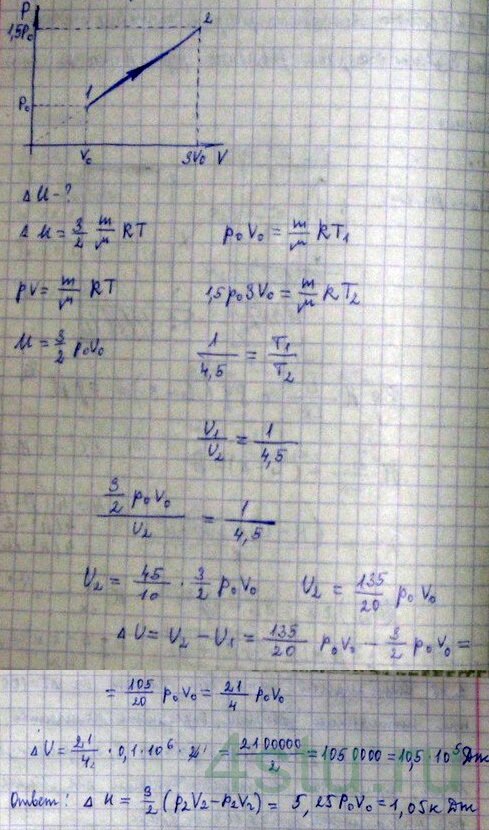 P
2
1,5P₀
1
P₀
V₀ 3V₀ V
ΔU - ?
ΔU = 3/2 m/μ RT p₀V₀ = m/μ RT₁
pV = m/μ RT 1,5p₀3V₀ = m/μ RT₂
U = 3/2 p₀V₀ 1/4,5 = T₁/T₂
U₁/U₂ = 1/4,5
3/2 p₀V₀ / U₂ = 1/4,5
U₂ = 45/10 · 3/2 p₀V₀ U₂ = 135/20 p₀V₀
ΔU = U₂ - U₁ = 135/20 p₀V₀ - 3/2 p₀V₀ =
= 105/20 p₀V₀ = 21/4 p₀V₀
ΔU = 21/4₂ · 0,1·10⁶ · = 2100000/2 = 1050000 = 10,5·10⁵ Дж
Ответ: ΔU = 3/2 (p₂V₂ - p₂V₂) = 5,25P₀V₀ = 1,05к Дж
4stu.ru